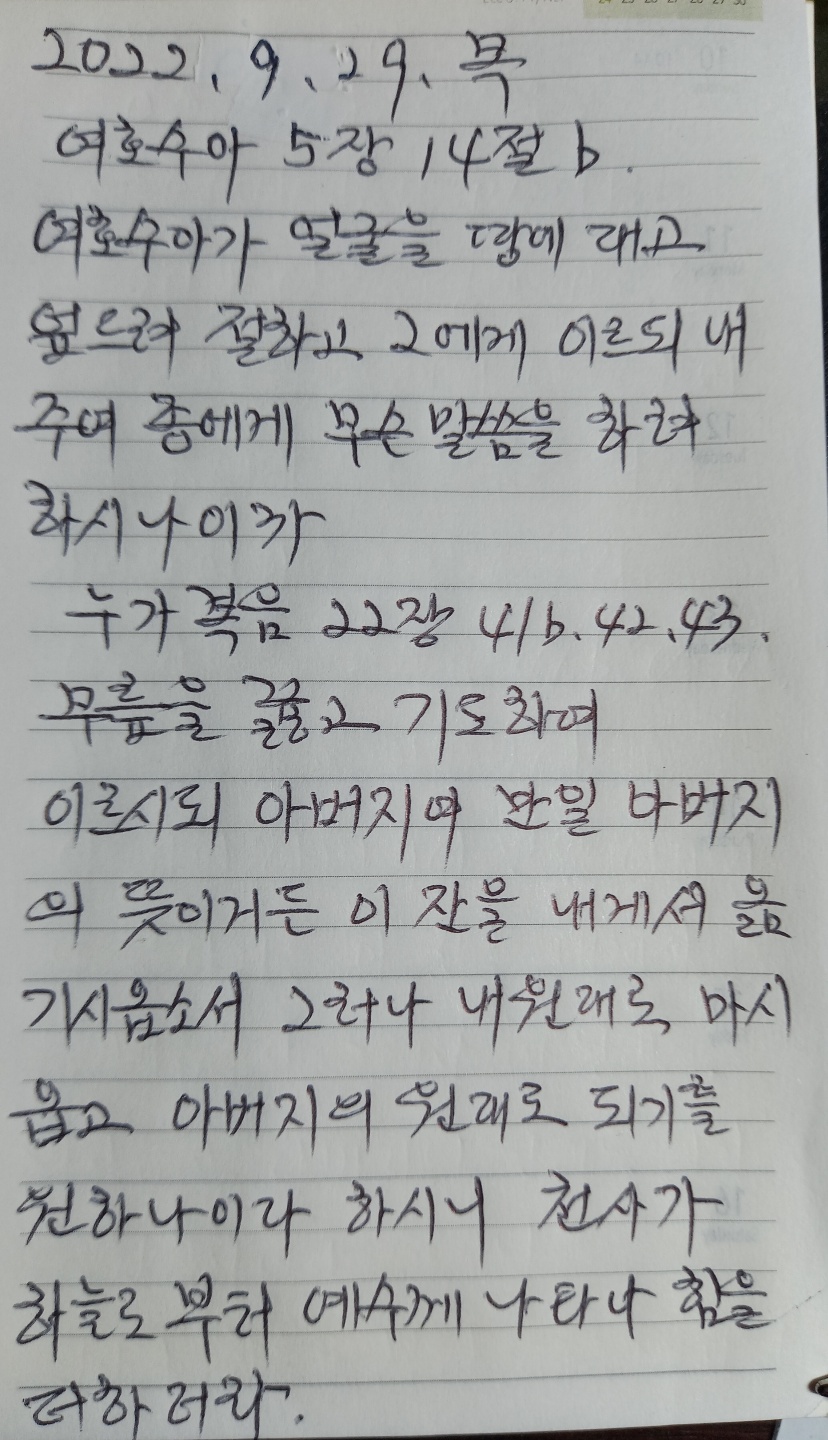 2022. 9. 29. 목
여호수아 5장 14절 b.
여호수아가 얼굴을 땅에 대고
엎드려 절하고 그에게 이르되 내
주여 종에게 무슨 말씀을 하려
하시나이까
누가복음 22장 41b. 42. 43.
무릎을 꿇고 기도하여
이르시되 아버지여 만일 아버지
의 뜻이거든 이 잔을 내게서 옮
기시옵소서 그러나 내 원대로 마시
옵고 아버지의 원대로 되기를
원하나이다 하시니 천사가
하늘로 부터 예수께 나타나 힘을
더하더라.